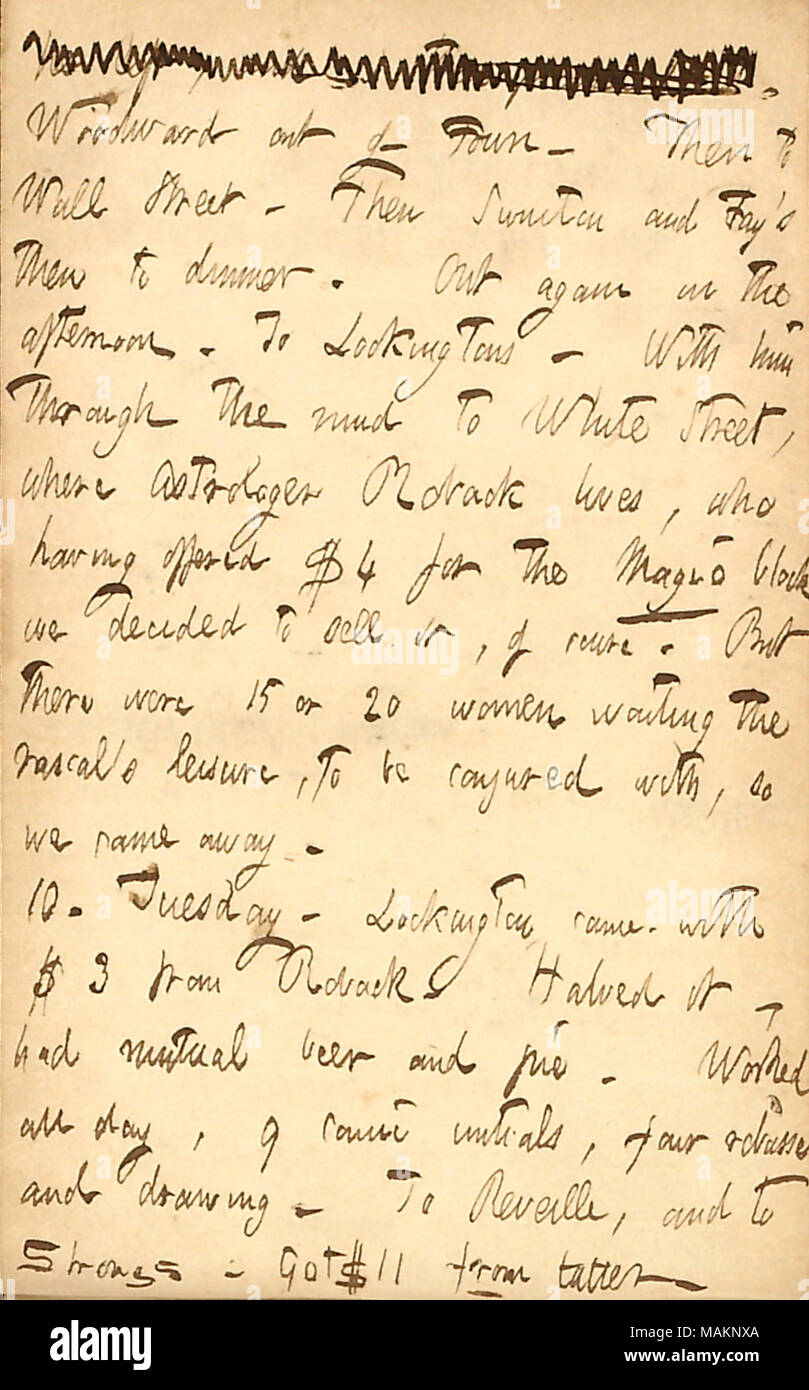 Woodward out of Town - Then to
Wall Street - Then Swinton and Fay's
then to dinner. Out again in the
afternoon. To Lockingtons - With him
through the mud to White Street,
where Astrologer Roback lives, who
having offered $4 for the Magic block
we decided to sell it, of course. But
there were 15 or 20 women waiting the
rascal's leisure, to be conjured with, so
we came away.
10. Tuesday - Lockington came with
$3 from Roback. Halved it -
had mutual beer and pie. Worked
all day, 9 comic initials, four rebusses
and drawing. To Reveille, and to
Strongs - Got $11 from latter.
alamy
Image ID: MAKNXA
www.alamy.com